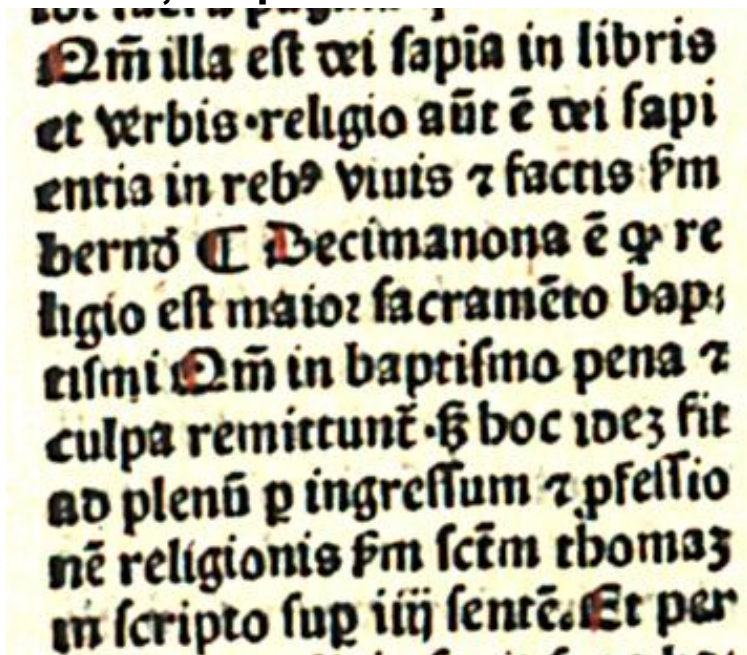 Qm̄ illa eſt dei ſapīa in libris
et verbis·religio aūt ē dei ſapi
entia in rebꝰ viuis ⁊ factis ẜm
bernd̄ ¶ Decimanona ē ꝙ re
ligio eſt maioꝛ ſacramēto bap⸗
tiſmi Qm̄ in baptiſmo pena ⁊
culpa remittunt̄·ẞ hoc ideꝫ fit
ad plenū ꝑ ingreſſum ⁊ ꝓfeſſio
nē religionis ẜm ſct̄m thomaꝫ
in ſcripto ſuꝑ iiij ſentē. Et per